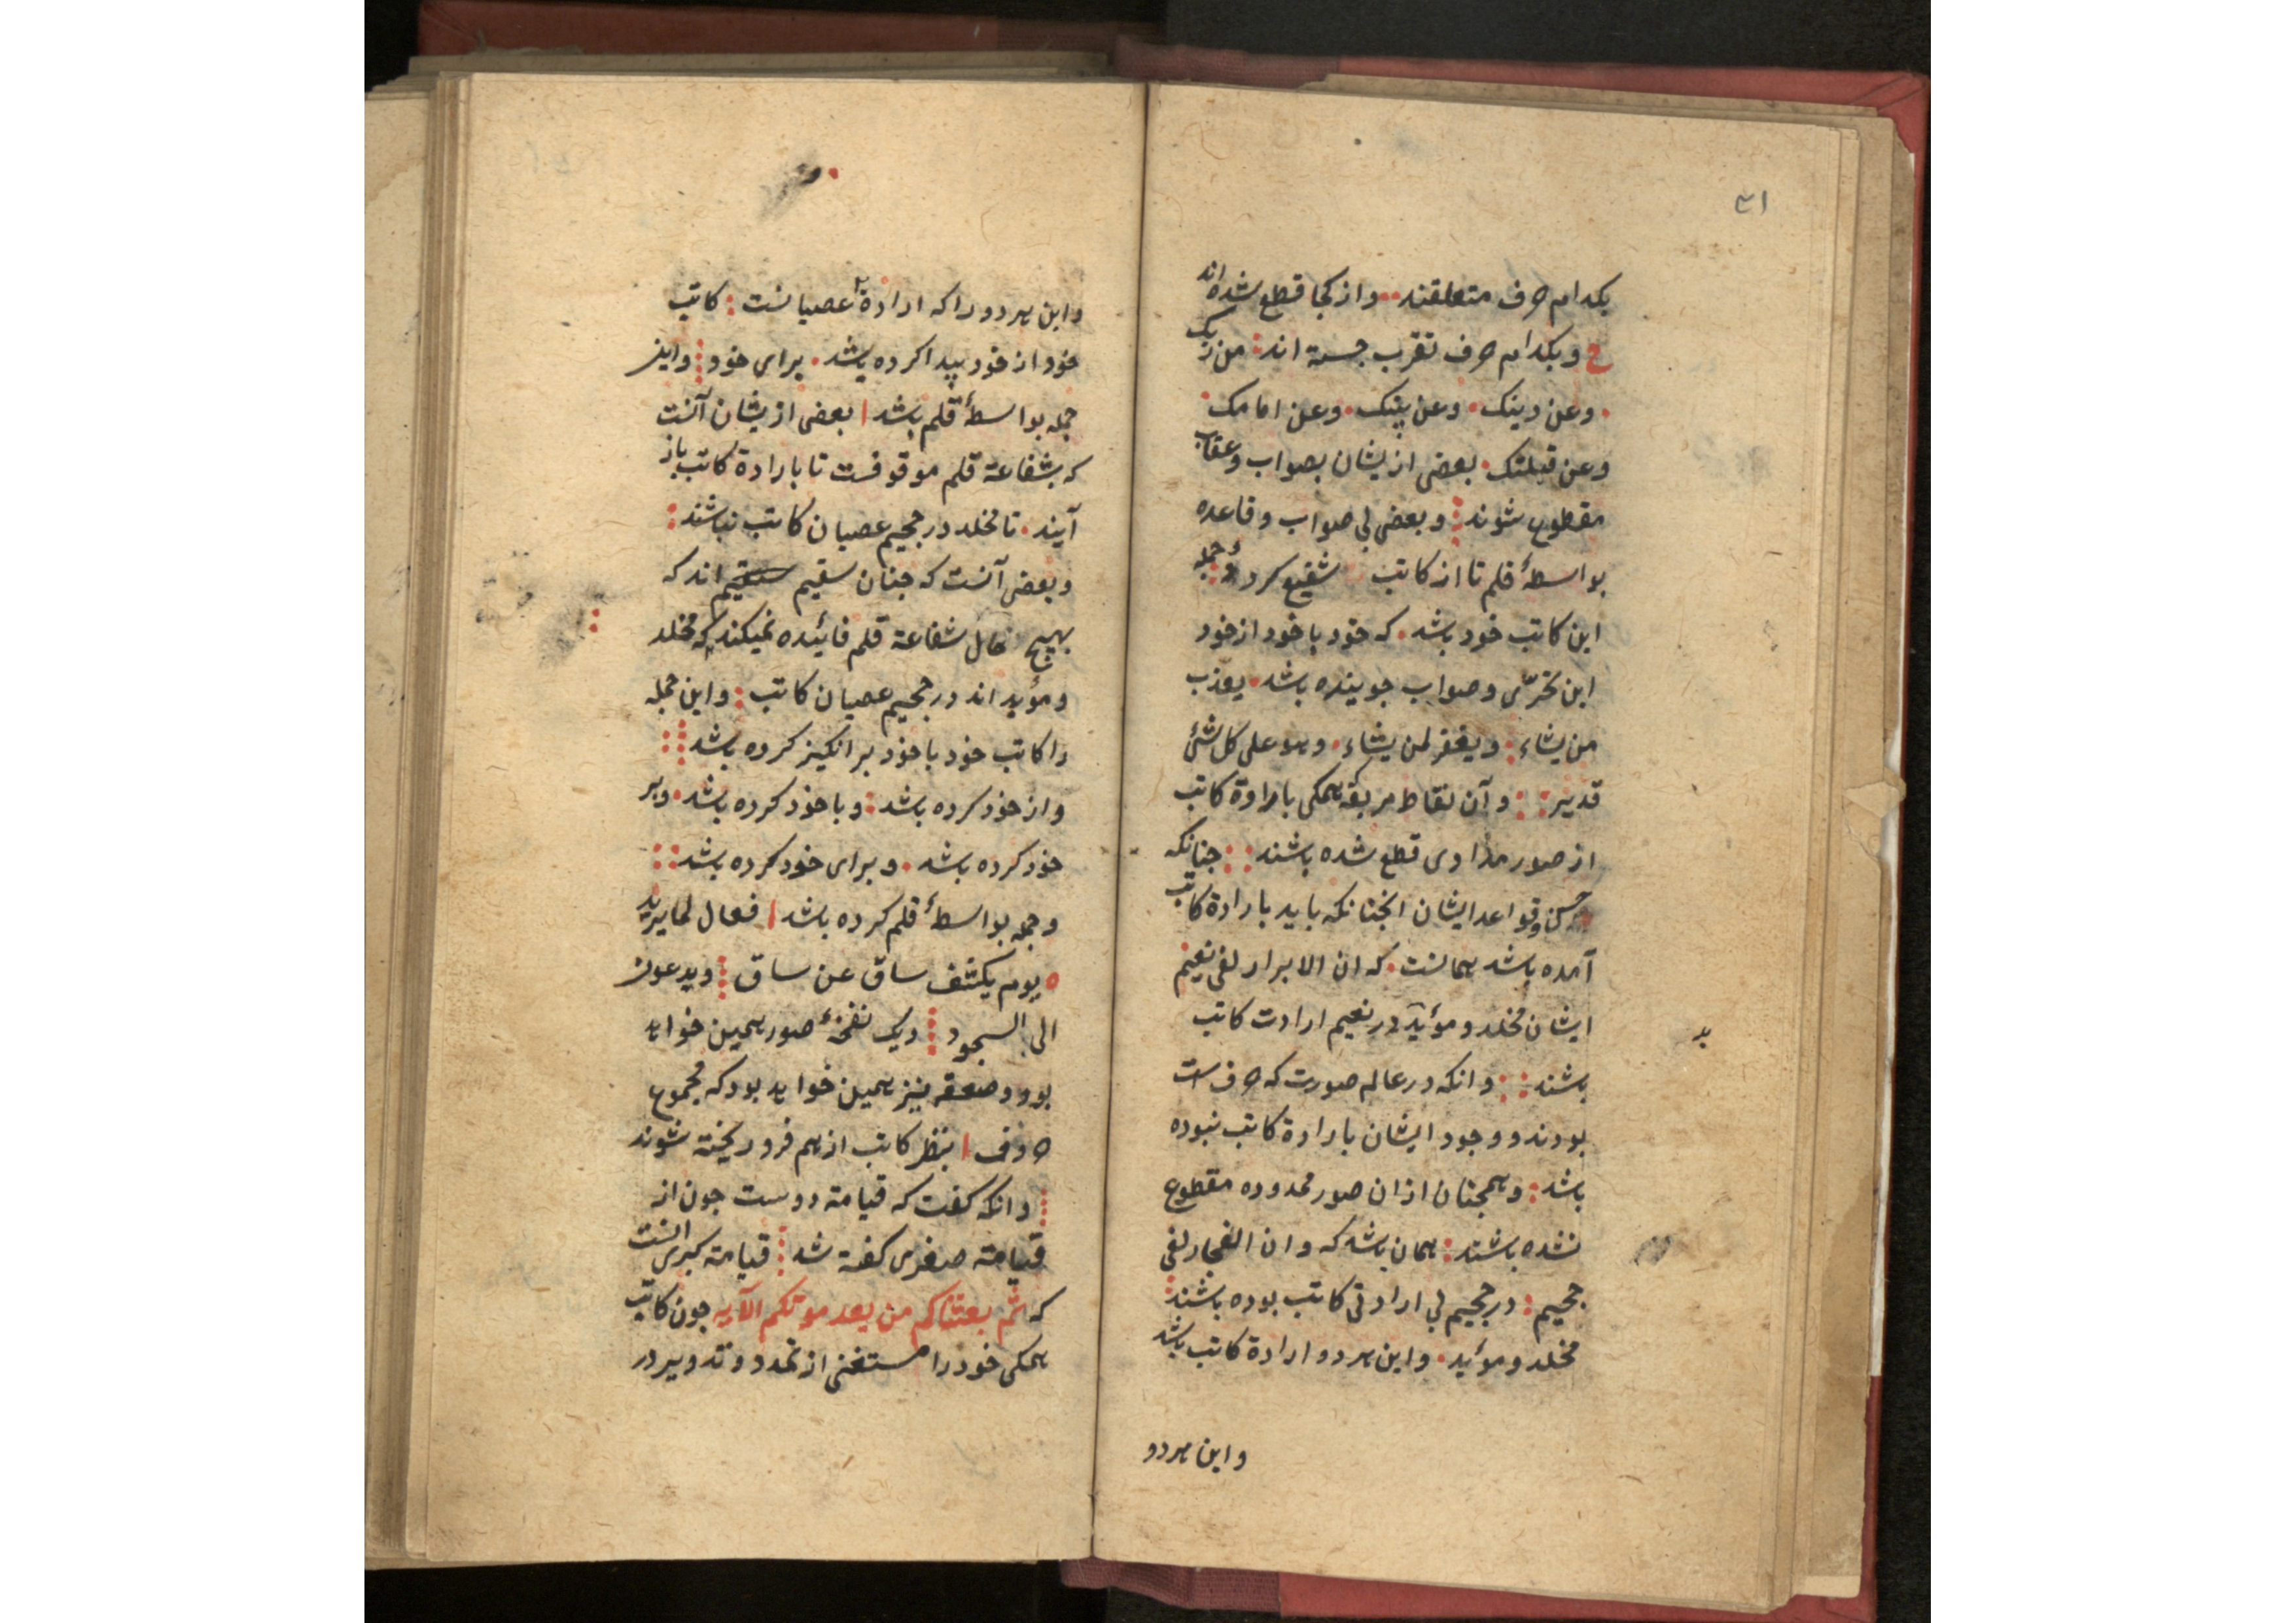 ٤١
بکدام حرف متعلقند و از کجا قطع شده اند
ح و بکدام حرف تقرب جسته اند من ربک
وعن دینک وعن نبیک وعن امامک
وعن قبلتک بعضی ازیشان بصواب وعقاب
مقطوع شوند و بعضی بی صواب و قاعده
بواسطهٔ قلم تا از کاتب شفیع کردد و جمله
این کاتب خود باشد که خود با خود از خود
این تحری و صواب جوینده باشد یعذب
من یشاء ویغفر لمن یشاء وهو علی کل شئ
قدیر و آن نقاط همکی بارادة کاتب
از صور مدادی قطع شده باشند جنانکه
حسن وقواعد ایشان انجنانکه باید بارادة کاتب
آمده باشد همانست که ان الابرار لفی نعیم
ایشان مخلد و مؤید در نعیم ارادت کاتب
باشند وانکه در عالم صورت که حرف است
بودند و وجود ایشان بارادة کاتب نبوده
باشد و همجنان ازان صور محدوده مقطوع
نشده باشند همان باشد که وان الفجار لفی
جحیم در جحیم بی ارادتی کاتب بوده باشند
مخلد و مؤید واین هر دو ارادة کاتب باشد
واین هر دو
واین هر دو را که ارادة با عصیانست کاتب
خود از خود پیدا کرده باشد برای خود واین
جمله بواسطهٔ قلم باشد بعضی ازیشان آنست
که بشفاعة قلم موقوفست تا بارادة کاتب باز
آیند تا مخلد در جحیم عصیان کاتب نباشند
و بعضی آنست که جنان سقیم سقیم اند که
بهیج حال شفاعة قلم فائیده نمیکند که مخلد
ومؤید اند در جحیم عصیان کاتب واین جمله
را کاتب خود با خود برانکیز کرده باشد
واز خود کرده باشد و با خود کرده باشد وبر
خود کرده باشد و برای خود کرده باشد
وجمله بواسطهٔ قلم کرده باشد فعال لما یرید
یوم یکشف ساق عن ساق ویدعون
الی السجود و یک نفخهٔ صور همین خواهد
بود و صعقه نیز همین خواهد بود که مجموع
حروف بنظر کاتب از هم فرو ریخته شوند
وانکه کفت که قیامة دوست جون از
قیامة صغری کفته شد قیامة کبری انست
که ثم بعثناکم من بعد موتکم الآیه جون کاتب
همکی خود را مستغنی از تمدد و تدویر در